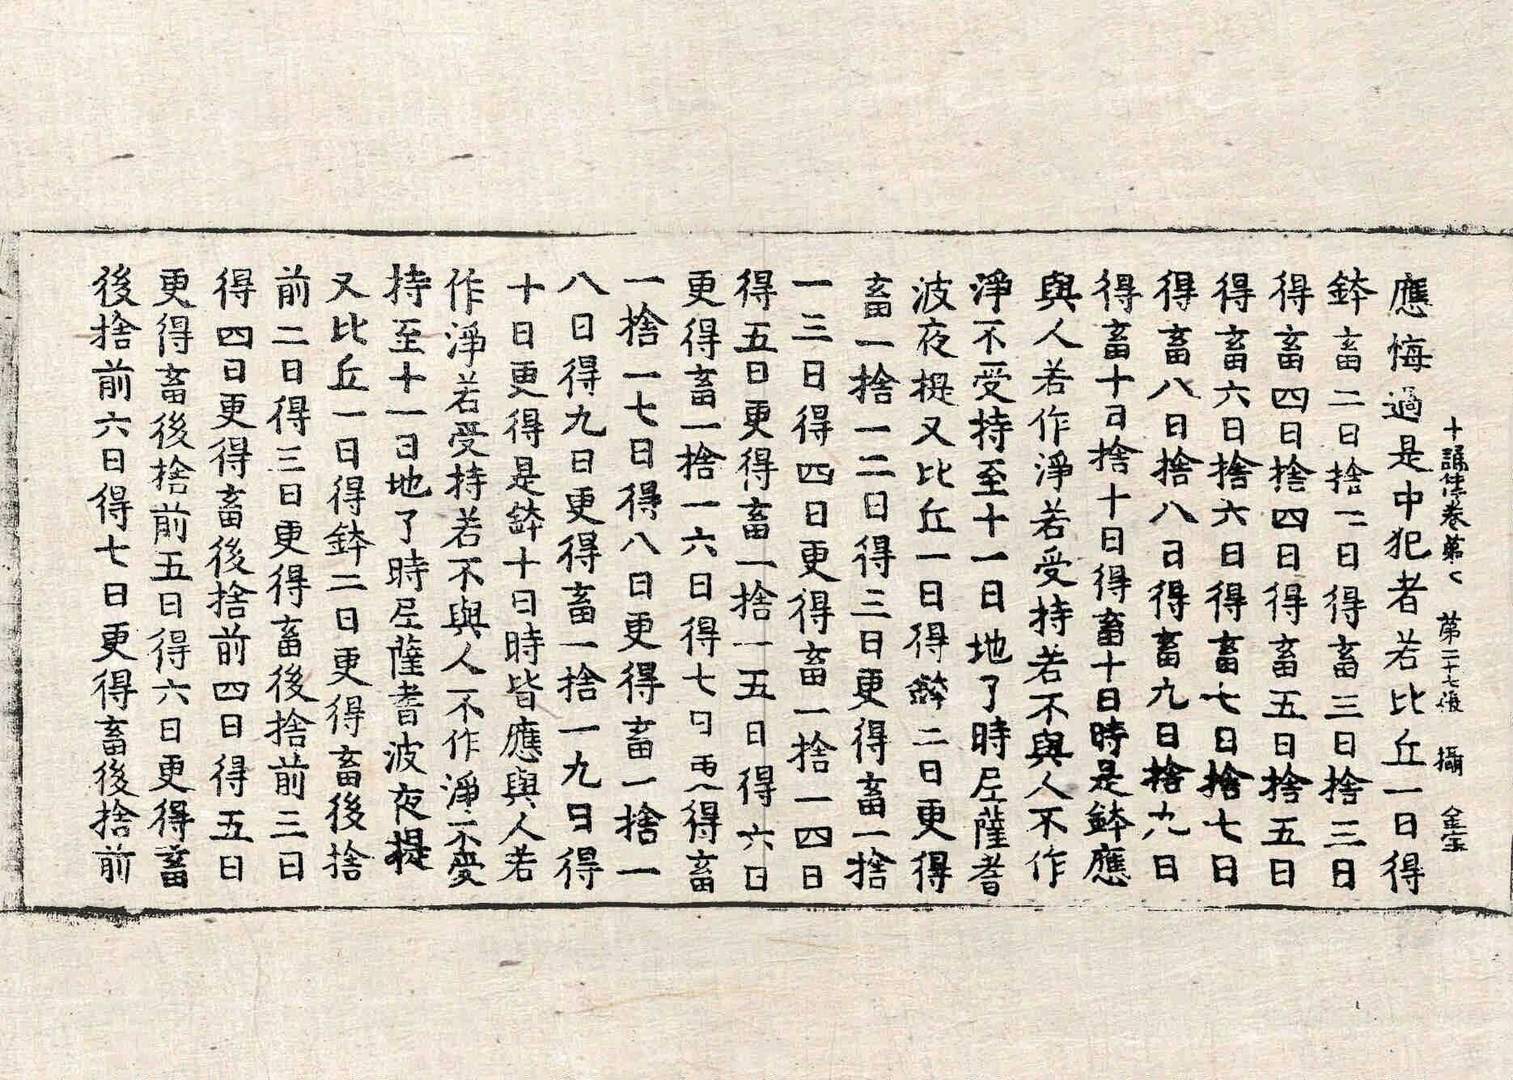 十誦律卷第七 第二十七張 攝
應悔過是中犯者若比丘一日得
鉢畜二日捨二日得畜三日捨三日
得畜四日捨四日得畜五日捨五日
得畜六日捨六日得畜七日捨七日
得畜八日捨八日得畜九日捨九日
得畜十日捨十日得畜十日時是鉢應
與人若作淨若受持若不與人不作
淨不受持至十一日地了時尼薩耆
波夜提又比丘一日得鉢二日更得
畜一捨一二日得三日更得畜一捨
一三日得四日更得畜一捨一四日
得五日更得畜一捨一五日得六日
更得畜一捨一六日得七日更得畜
一捨一七日得八日更得畜一捨一
八日得九日更得畜一捨一九日得
十日更得是鉢十日時皆應與人若
作淨若受持若不與人不作淨不受
持至十一日地了時尼薩耆波夜提
又比丘一日得鉢二日更得畜後捨
前二日得三日更得畜後捨前三日
得四日更得畜後捨前四日得五日
更得畜後捨前五日得六日更得畜
後捨前六日得七日更得畜後捨前